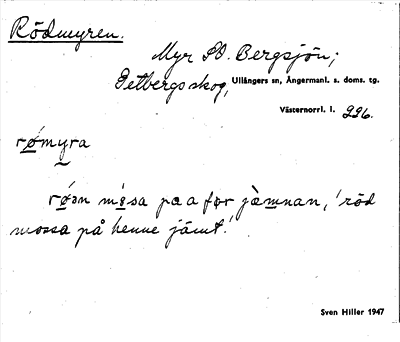 Rödmyren.
Myr SO. Bergsjön;
Getbergsskog, Ullångers sn, Ångermanl. s. doms. tg.
Västernorrl. l. 226.
rømyra
røən mosa pa a før jàmnan, 'röd
mossa på henne jämt'.
Sven Hiller 1947